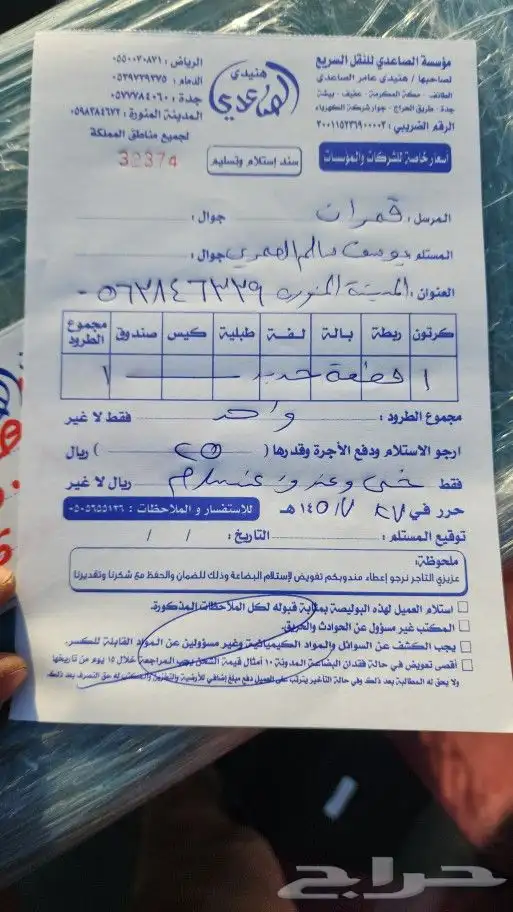 مؤسسة الصاعدي للنقل السريع
لصاحبها / هنيدي عامر الصاعدي
الطائف - مكة المكرمة - عفيف - بيشة
جدة : طريق الحراج - جوار شركة الكهرباء
الرقم الضريبي : ٣٠٠١١٥٢٣٦٩٠٠٠٠٣
أسعار خاصة للشركات والمؤسسات
هنيدي
الصاعدي
سند إستلام وتسليم
الرياض : ٠٥٥٠٠٣٠٨٢١
الدمام : ٠٥٣٩٧٢٩٢٧٥
جدة : ٠٥٧٧٧٨٤٠٦٠
المدينة المنورة : ٠٥٩٨٢٨٤٦٧٢
لجميع مناطق المملكة
32374
المرسل : قمران جوال :
المستلم : يوسف سالم العمري جوال :
العنوان : المدينة المنورة ٠٥٦٢٨٤٦٣٣٩
كرتون ربطة بالة لفة طبلية كيس صندوق مجموع الطرود
١ قطعة حديد ١
مجموع الطرود : واحد فقط لا غير
ارجو الاستلام ودفع الأجرة وقدرها ( ٢٥ ) ريال
فقط ريال لا غير
حرر في ١٤٥ هـ للأستفسار و الملاحظات : ٠٥٠٥٦٥٥١٣٦
توقيع المستلم : التاريخ : / /
ملحوظة:
عزيزي التاجر نرجو إعطاء مندوبكم تفويض لإستلام البضاعة وذلك للضمان والحفظ مع شكرنا وتقديرنا
استلام العميل لهذه البوليصة بمثابة قبوله لكل الملاحظات المذكورة.
المكتب غير مسؤول عن الحوادث والحريق.
يجب الكشف عن السوائل والمواد الكيميائية وغير مسؤولين عن المواد القابلة للكسر.
أقصى تعويض في حالة فقدان البضاعة المدونة ١٠ أمثال قيمة الشحن يجب المراجعة خلال ١٥ يوم من تاريخها
ولا يحق له المطالبة بعد ذلك وفي حالة التأخير يترتب على العميل دفع مبلغ إضافي للأرضية والتخزين والمكتب له حق التصرف بعد ذلك
حراج